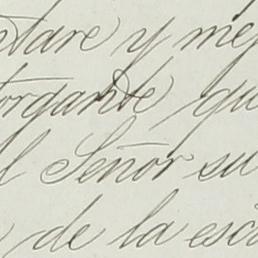 ntare y mej
torgante que
l Señor su
de la esc